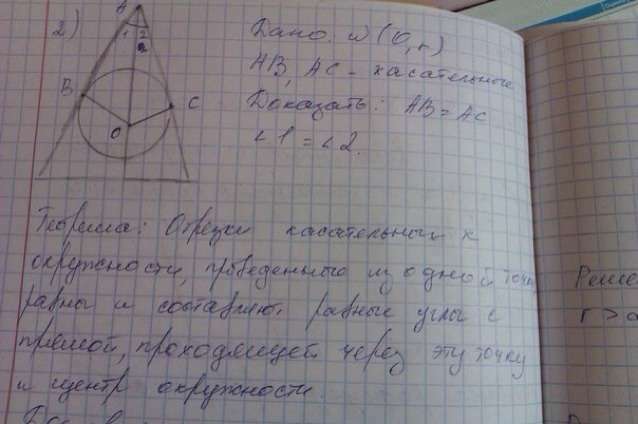 2)
A
1 2
B
C
O
Дано: ω (O, r)
AB, AC - касательные
Доказать: AB = AC
∠1 = ∠2.
Теорема: Отрезки касательных к
окружности, проведенного из одной точки
равны и составляют равные углы с
прямой, проходящей через эту точку
и центр окружности.
Реше
r >